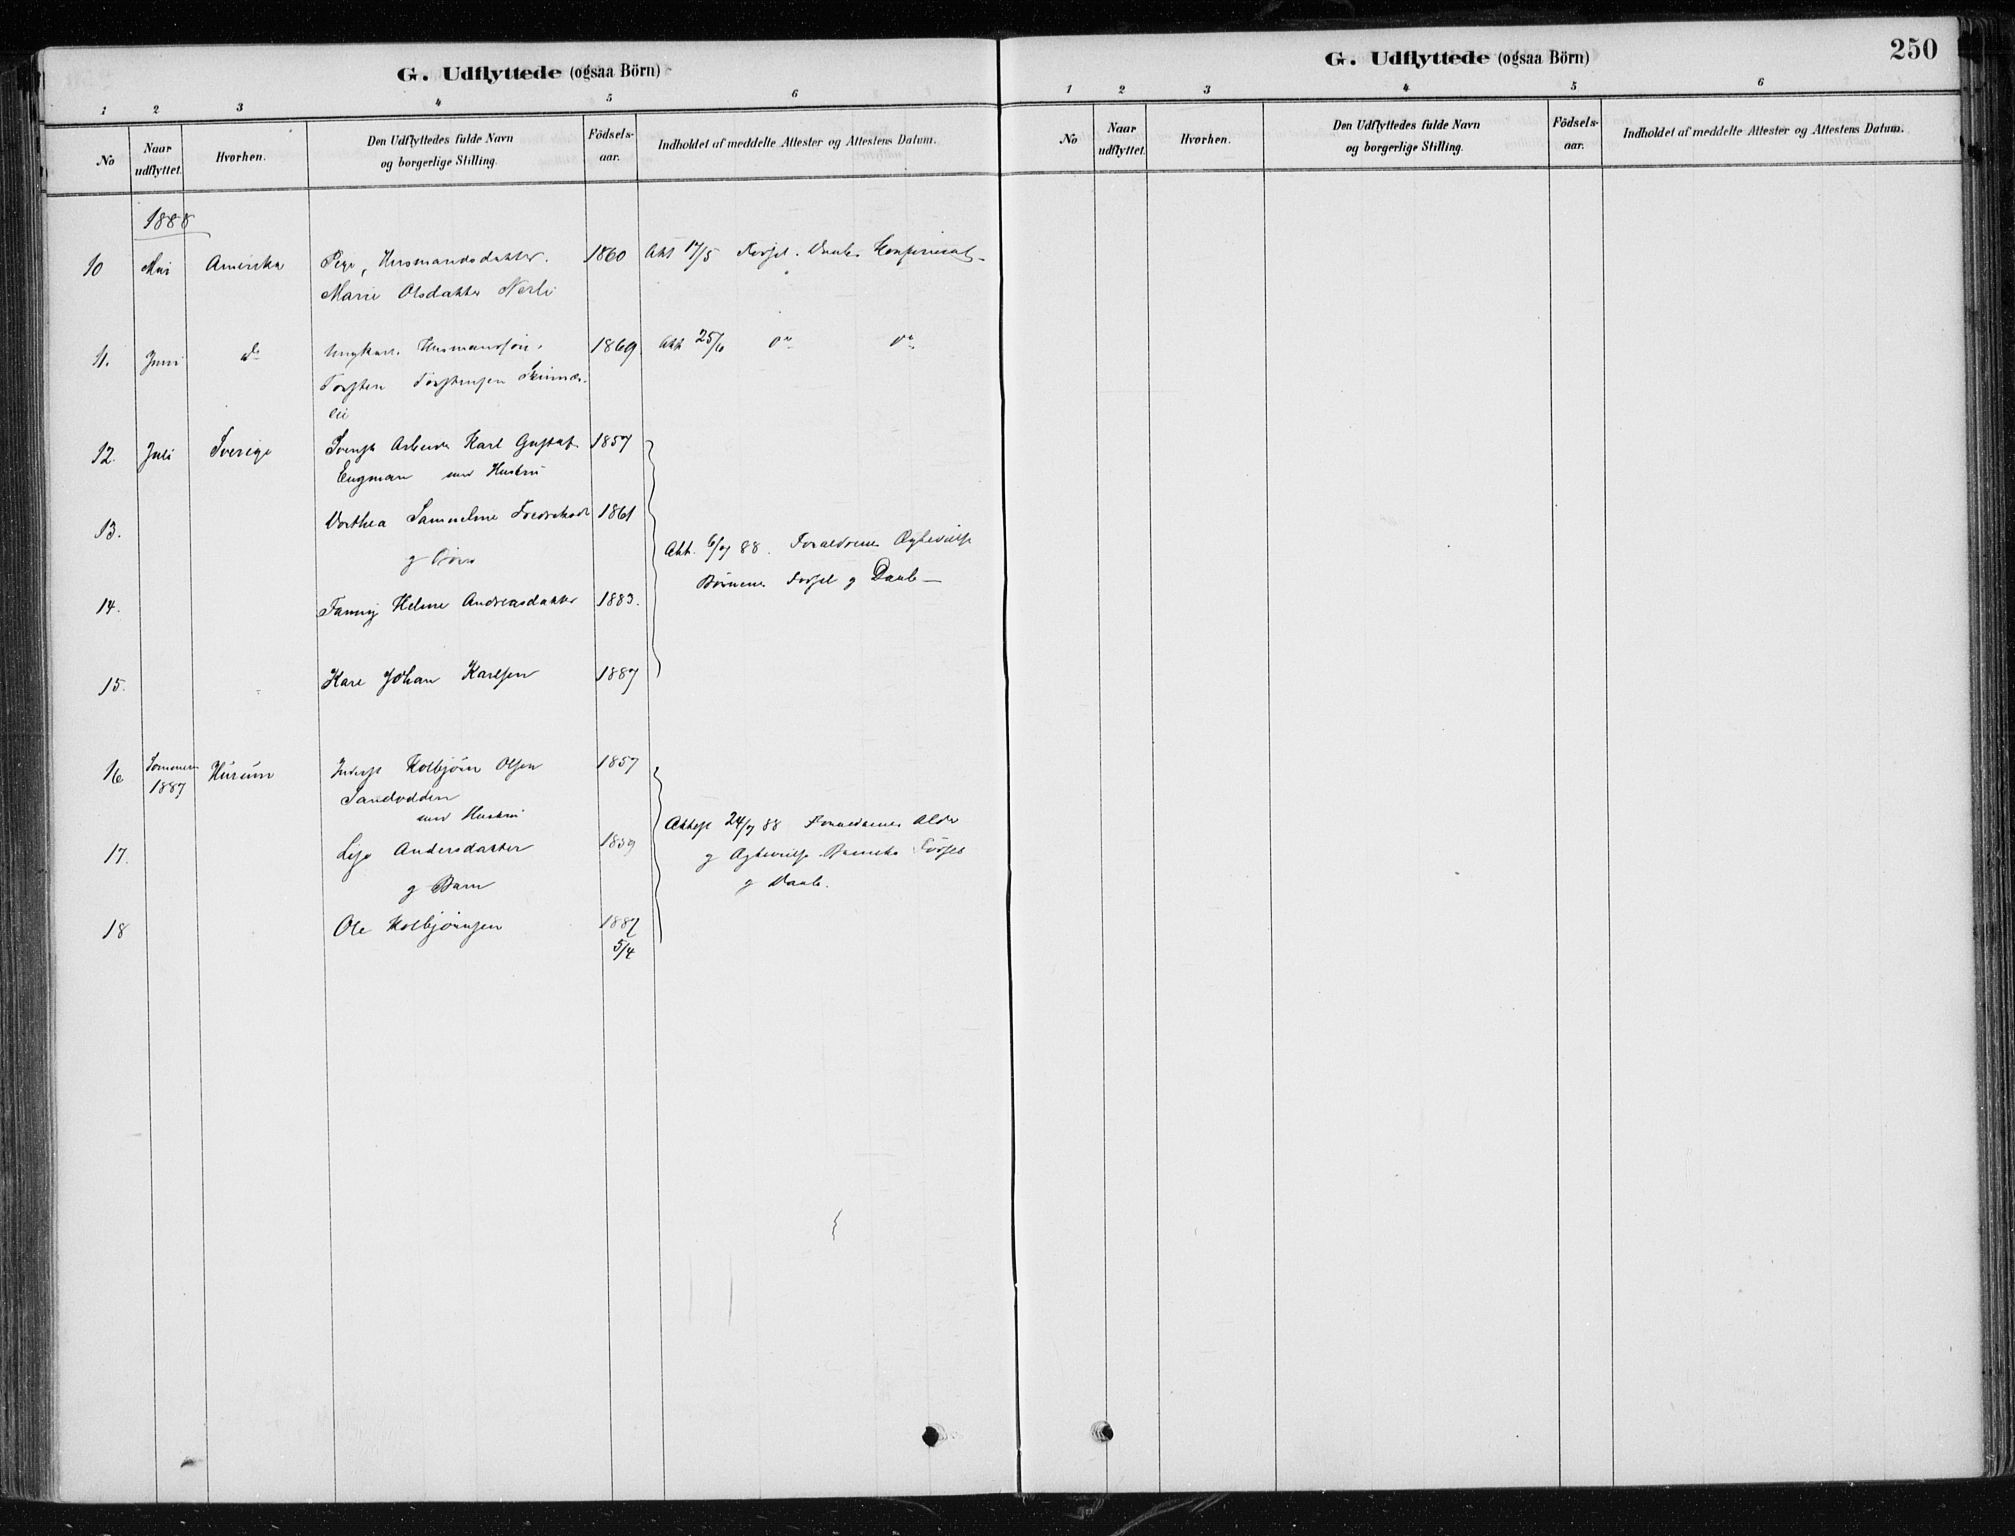 G. Udflyttede (ogsaa Börn)
1 2 3 4 5 6
No
Naar udflyttet.
Hvorhen.
Den Udflyttedes fulde Navn og borgerlige Stilling.
Födsels-aar.
Indholdet af meddelte Attester og Attestens Datum.
1888
10 Mai Amerika Pige, Husmandsdatter. 1860 Att 17/5 Fødsel. Daab. Konfirmat-
Marie Olsdatter
11. Juni do Ungkarl. Husmandssøn. 1869 Att 25/6 do do
Torsten Torstensen
lii
12. Juli Sverige Svensk Arbeider Karl Gustaf 1857
Engman med Hustru
13. Dorthea 1861
g Børn
Att. 6/7 88. Forældrenes Ægtevielse
Børnenes Fødsel g Daab-
14. Fanny Andreasdatter 1883.
15. Karl Johan Karlsen 1887
16 Sommeren 1887 Hurum Inderst Kolbjørn Olsen 1857
Sandodden
med Hustru
17. Lise Andersdatter 1859
g Barn
Attest 24/7 88 Forældrenes Alder
g Ægtevielse Barnets Fødsel
g Daab.
18 Ole Kolbjørnsen 1887
5/4
250
G. Udflyttede (ogsaa Börn)
1 2 3 4 5 6
No
Naar udflyttet.
Hvorhen.
Den Udflyttedes fulde Navn og borgerlige Stilling.
Födsels-aar.
Indholdet af meddelte Attester og Attestens Datum.